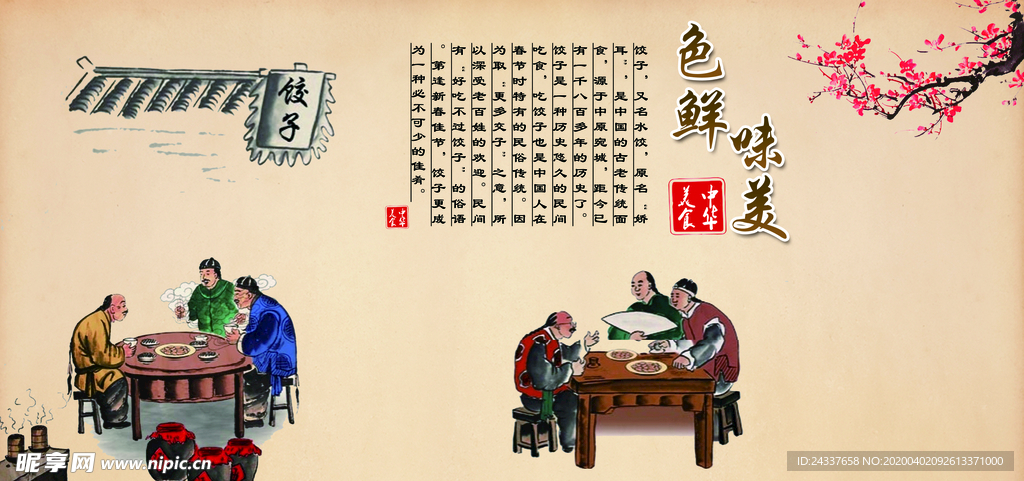 饺子
色鲜
味美
中华
美食
饺子，又名水饺，原名"娇
耳"，是中国的古老传统面
食，源于中原宛城，距今已
有一千八百多年的历史了。
饺子是一种历史悠久的民间
吃食，吃饺子也是中国人在
春节时特有的民俗传统。因
为取"更多交子"之意，所
以深受老百姓的欢迎。民间
有"好吃不过饺子"的俗语
。第逢新春佳节，饺子更成
为一种必不可少的佳肴。
中华
美食
昵享网 www.nipic.cn
ID:24337658 NO:20200402092613371000